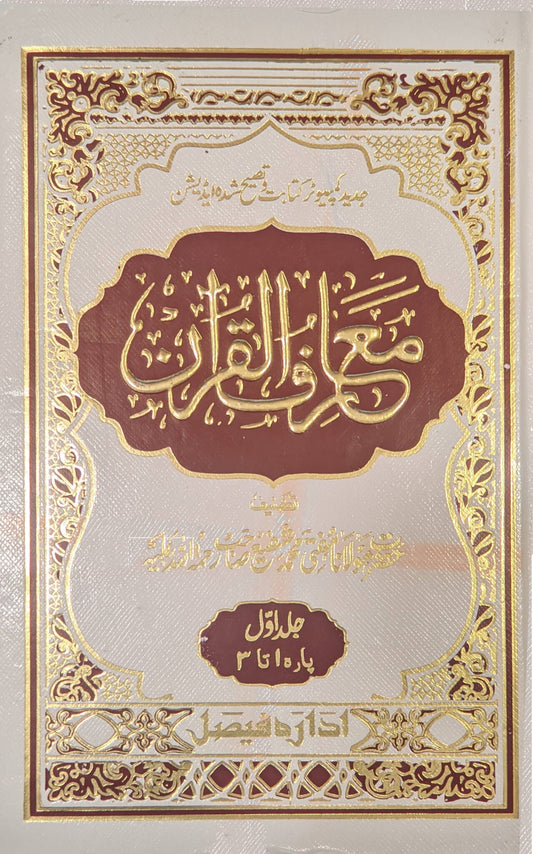 جدید کمپیوٹر کتابت و تصیح شدہ ایڈیشن
معارف القرآن
تصنیف
حضرت مولانا مفتی محمد شفیع صاحب رحمۃ اللہ علیہ
جلد اوّل
پارہ ۱ تا ۳
ادارہ فیصل